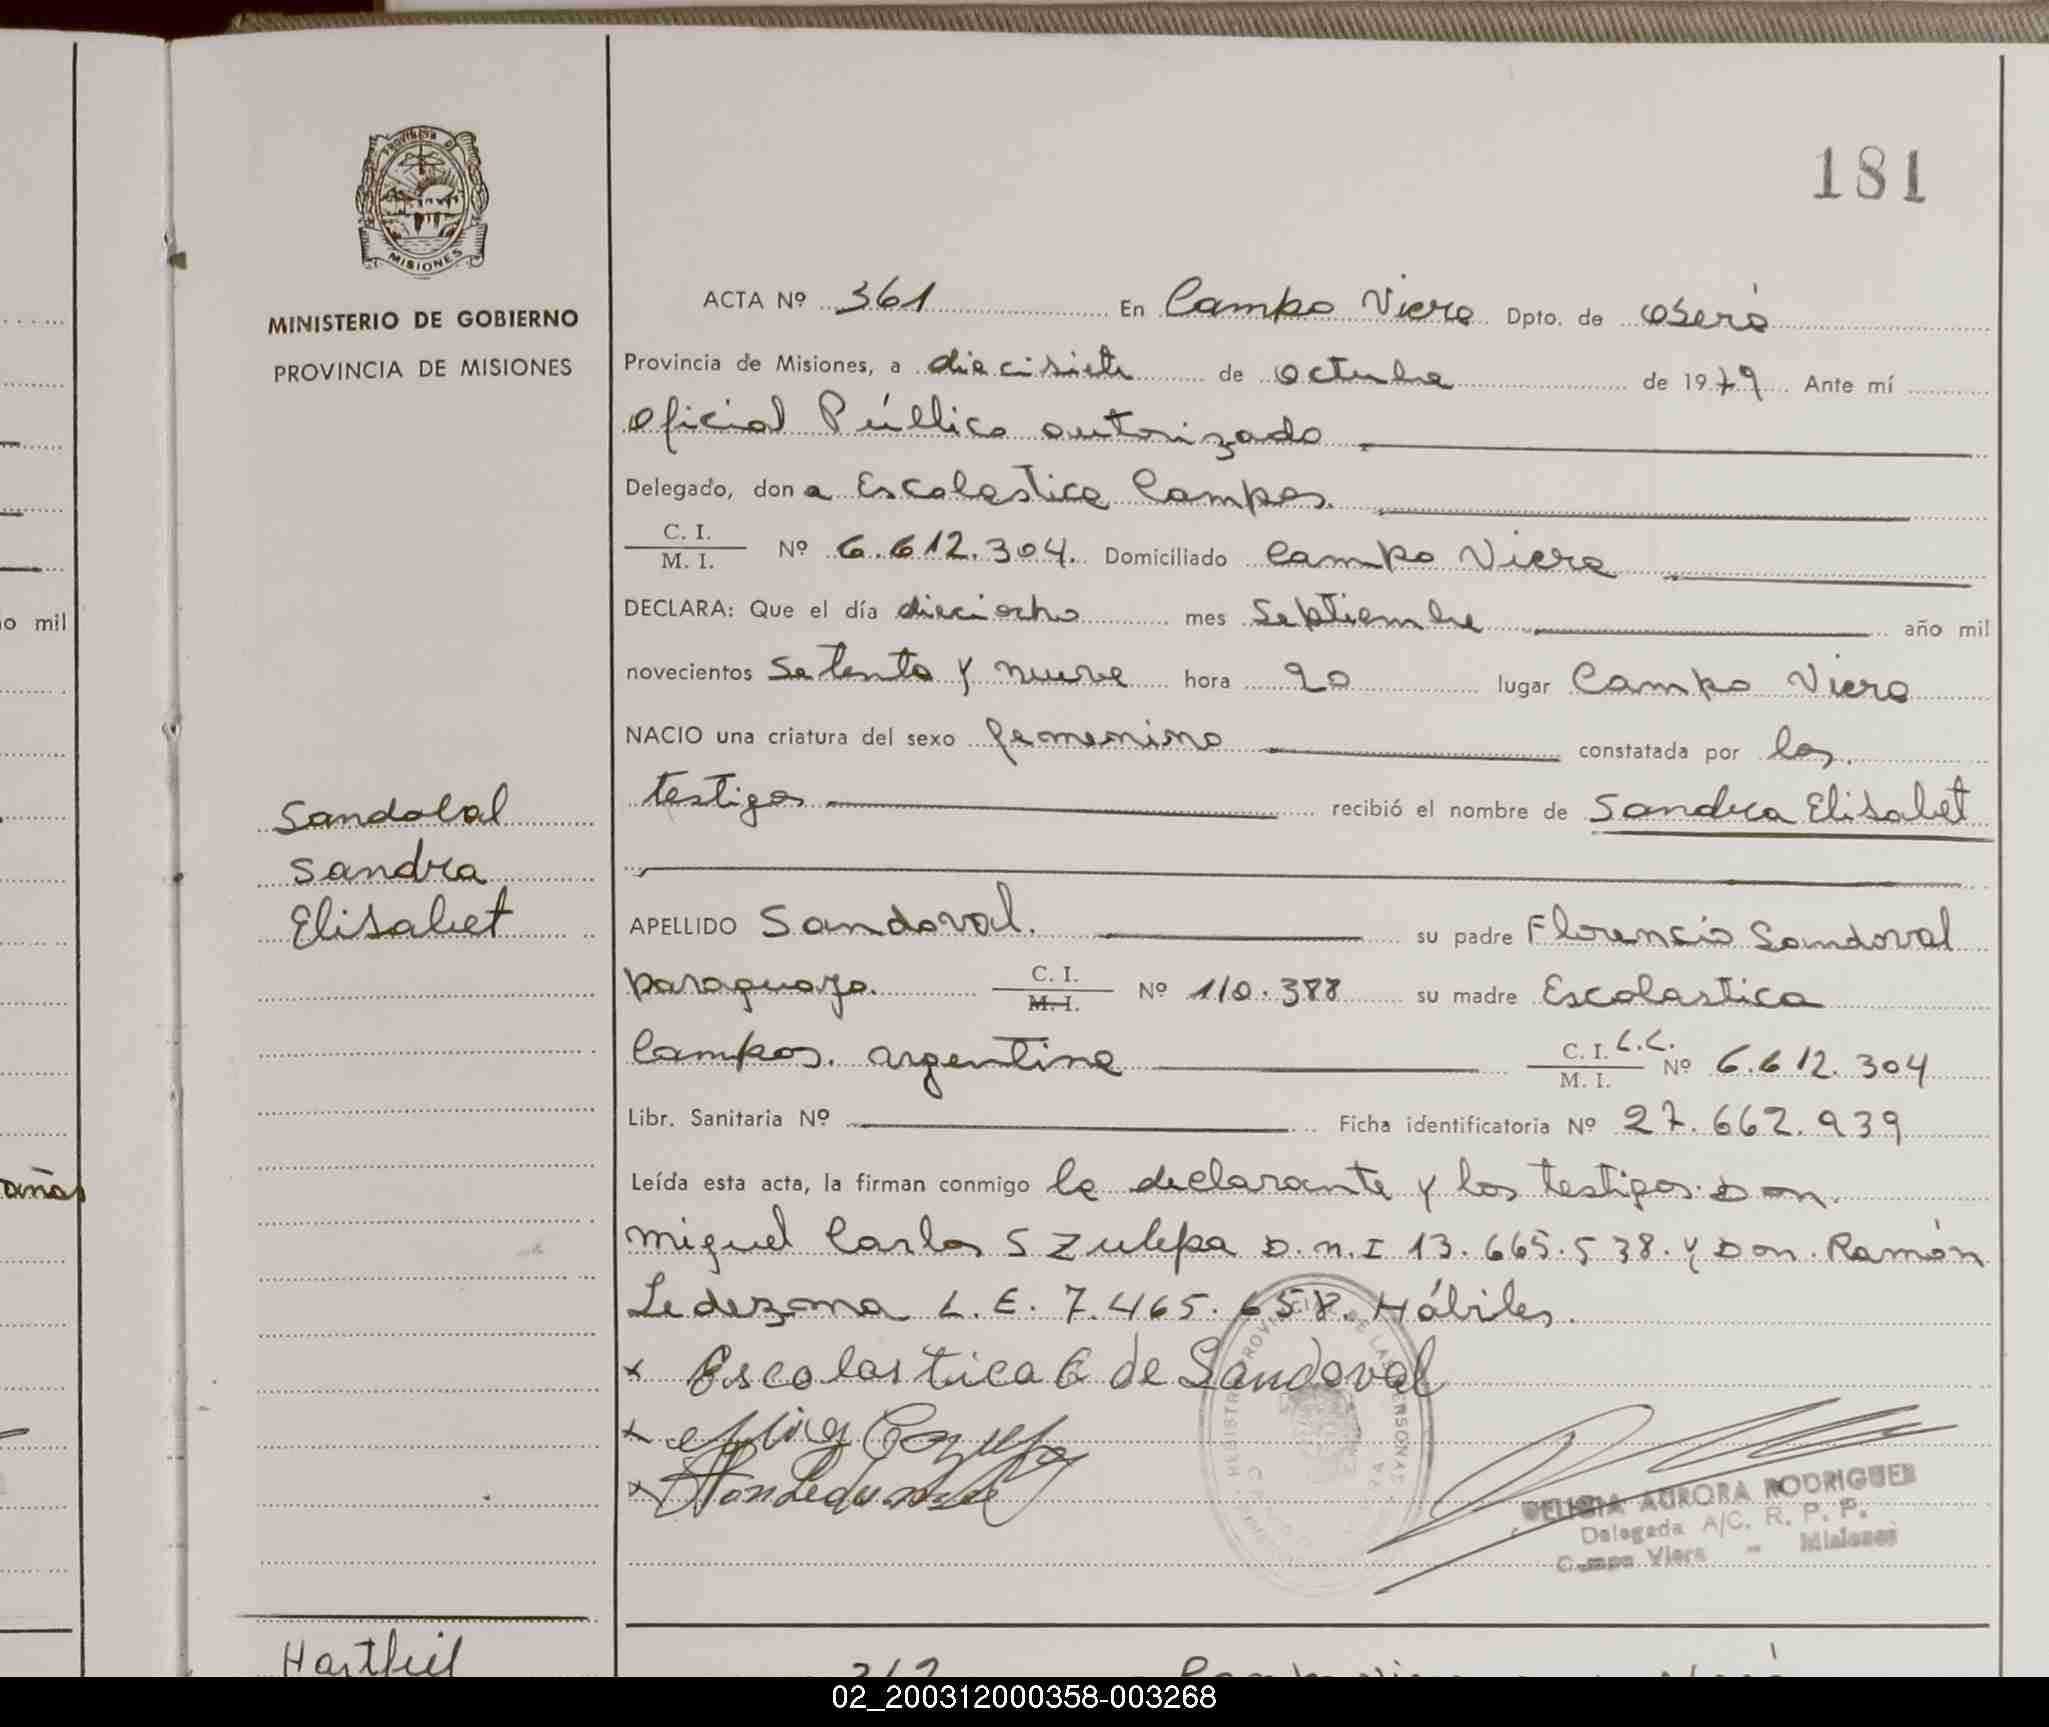 181
PROVINCIA DE
MISIONES
MINISTERIO DE GOBIERNO
PROVINCIA DE MISIONES
Sandoval
Sandra
Elisabet
ACTA Nº 361 En Campo Viera Dpto. de Oberá
Provincia de Misiones, a diecisiete de Octubre de 1979 Ante mí
Oficial Público autorizado
Delegado, don a Escolastica Campos.
C. I.
M. I. Nº 6.612.304. Domiciliado Campo Viera
DECLARA: Que el día dieciocho mes Septiembre año mil
novecientos Setenta y nueve hora 20 lugar Campo Viera
NACIO una criatura del sexo femenino constatada por los
testigos recibió el nombre de Sandra Elisabet
APELLIDO Sandoval. su padre Florencio Sandoval
paraguayo. C. I. M. I. Nº 110.388 su madre Escolastica
Campos. argentina C. I. L.C. M. I. Nº 6.612.304
Libr. Sanitaria Nº Ficha identificatoria Nº 27.662.939
Leída esta acta, la firman conmigo la declarante y los testigos. Don.
Miguel Carlos Szulepa D.N.I 13.665.538. y Don. Ramón
Ledezma L.E. 7.465.658. Hábiles.
x Escolastica C de Sandoval
x
x
AURORA RODRIGUEZ
Delegada A/C. R. P. P.
Campo Viera - Misiones
Hartfiel
362
años
o mil
02_200312000358-003268